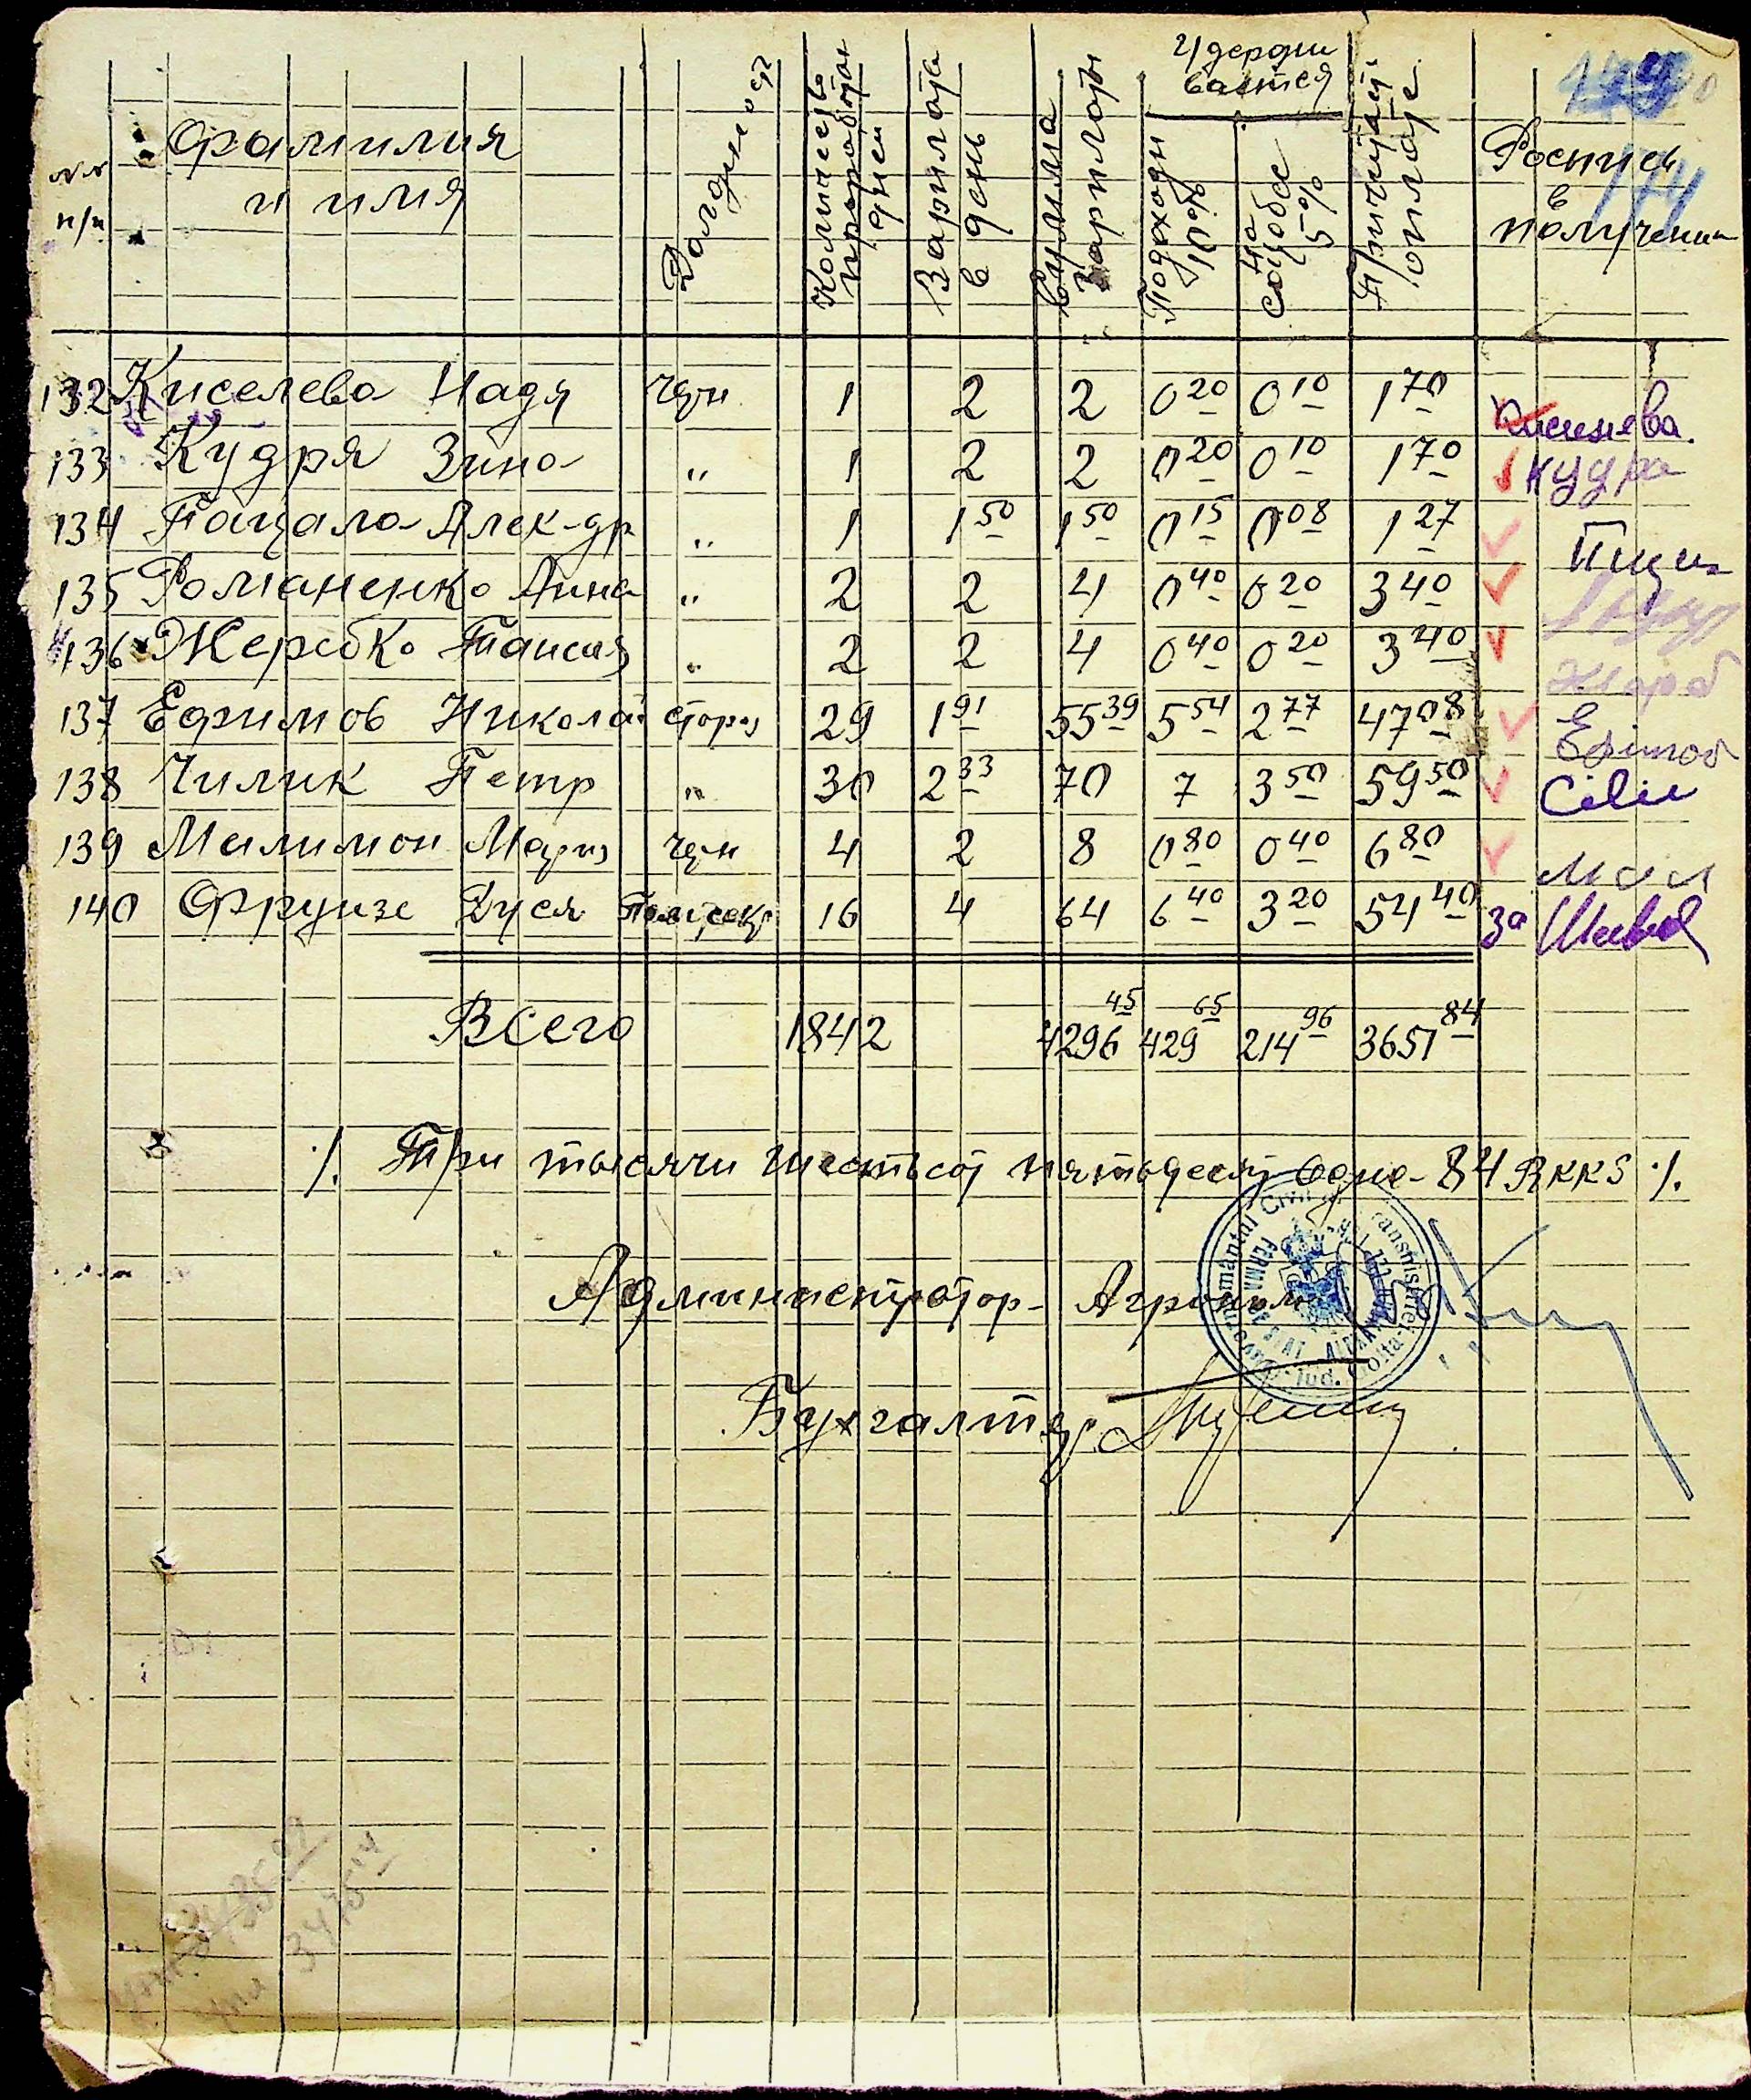 №№ п/п Фамилия и имя Должность Количество проработан дней Зарплата в день Сумма зарплаты Удерживается Подоходн 10% на соцобес 5% Причитает. к оплате Роспись в получении
174
132 Киселева Надя чрн 1 2 2 0 20 0 10 1 70
133 Кудря Зина " 1 2 2 0 20 0 10 1 70 Кудря
134 Пацала Алек-др " 1 1 50 1 50 0 15 0 08 1 27
135 Романенко Анна " 2 2 4 0 40 0 20 3 40
136 Жеребко Таисия " 2 2 4 0 40 0 20 3 40 Жереб
137 Ефимов Николай сторож 29 1 91 55 39 5 54 2 77 47 08
138 Чилик Петр " 30 2 33 70 7 3 50 59 50 Cilic
139 Малимон Мария чрн 4 2 8 0 80 0 40 6 80 Мал
140 Фрунзе Дуся 16 4 64 6 40 3 20 54 40 за
Всего 1842 4296 45 429 65 214 96 3651 84
./. Три тысячи шестьсот пятьдесят одна - 84 RKKS ./.
Администратор - Агроном
Guvernământul Civil al Transnistriei Jud. Golta
FERMA DE STAT
Бухгалтер